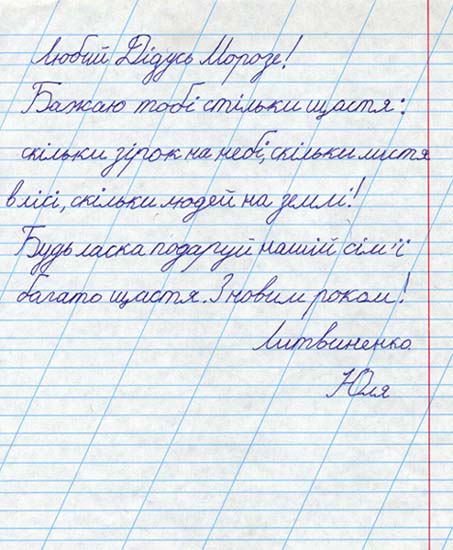 Любий Дідусь Морозе!
Бажаю тобі стільки щастя:
скільки зірок на небі, скільки листя
в лісі, скільки людей на землі!
Будь ласка подаруй нашій сім'ї
багато щастя. З новим роком!
Литвиненко
Юля